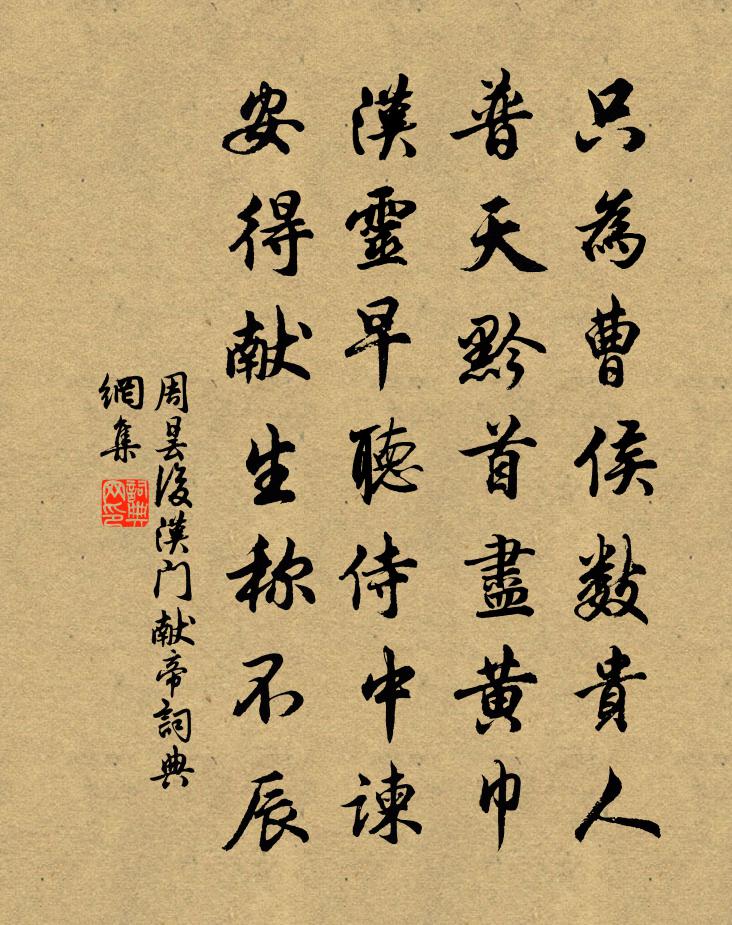 只為曹侯數貴人
普天黔首盡黃巾
漢靈早聽侍中諫
安得献生称不辰
周曇後漢门献帝詞典
網集
詞典網印